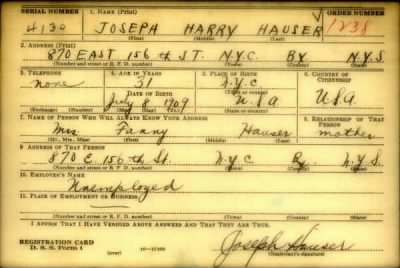 SERIAL NUMBER 1. NAME (Print) ORDER NUMBER
4130 JOSEPH HARRY HAUSER 1238
(First) (Middle) (Last)
2. ADDRESS (Print)
870 EAST 156th ST. N.Y.C. BX N.Y.S.
(Number and street or R. F. D. number) (Town) (County) (State)
3. TELEPHONE 4. AGE IN YEARS 5. PLACE OF BIRTH 6. COUNTRY OF CITIZENSHIP
none 31 N.Y.C.
DATE OF BIRTH (Town or county)
July 8 1909 USA USA
(Exchange) (Number) (Mo.) (Day) (Yr.) (State or country)
7. NAME OF PERSON WHO WILL ALWAYS KNOW YOUR ADDRESS 8. RELATIONSHIP OF THAT PERSON
Mrs. Fanny Hauser mother
(Mr., Mrs., Miss) (First) (Middle) (Last)
9. ADDRESS OF THAT PERSON
870 E. 156th St. N.Y.C Bx. N.Y.S.
(Number and street or R. F. D. number) (Town) (County) (State)
10. EMPLOYER'S NAME
Unemployed
11. PLACE OF EMPLOYMENT OR BUSINESS
(Number and street or R. F. D. number) (Town) (County) (State)
I AFFIRM THAT I HAVE VERIFIED ABOVE ANSWERS AND THAT THEY ARE TRUE.
REGISTRATION CARD
D. S. S. Form 1 (over) 16-17105 Joseph Hauser
(Registrant's signature)